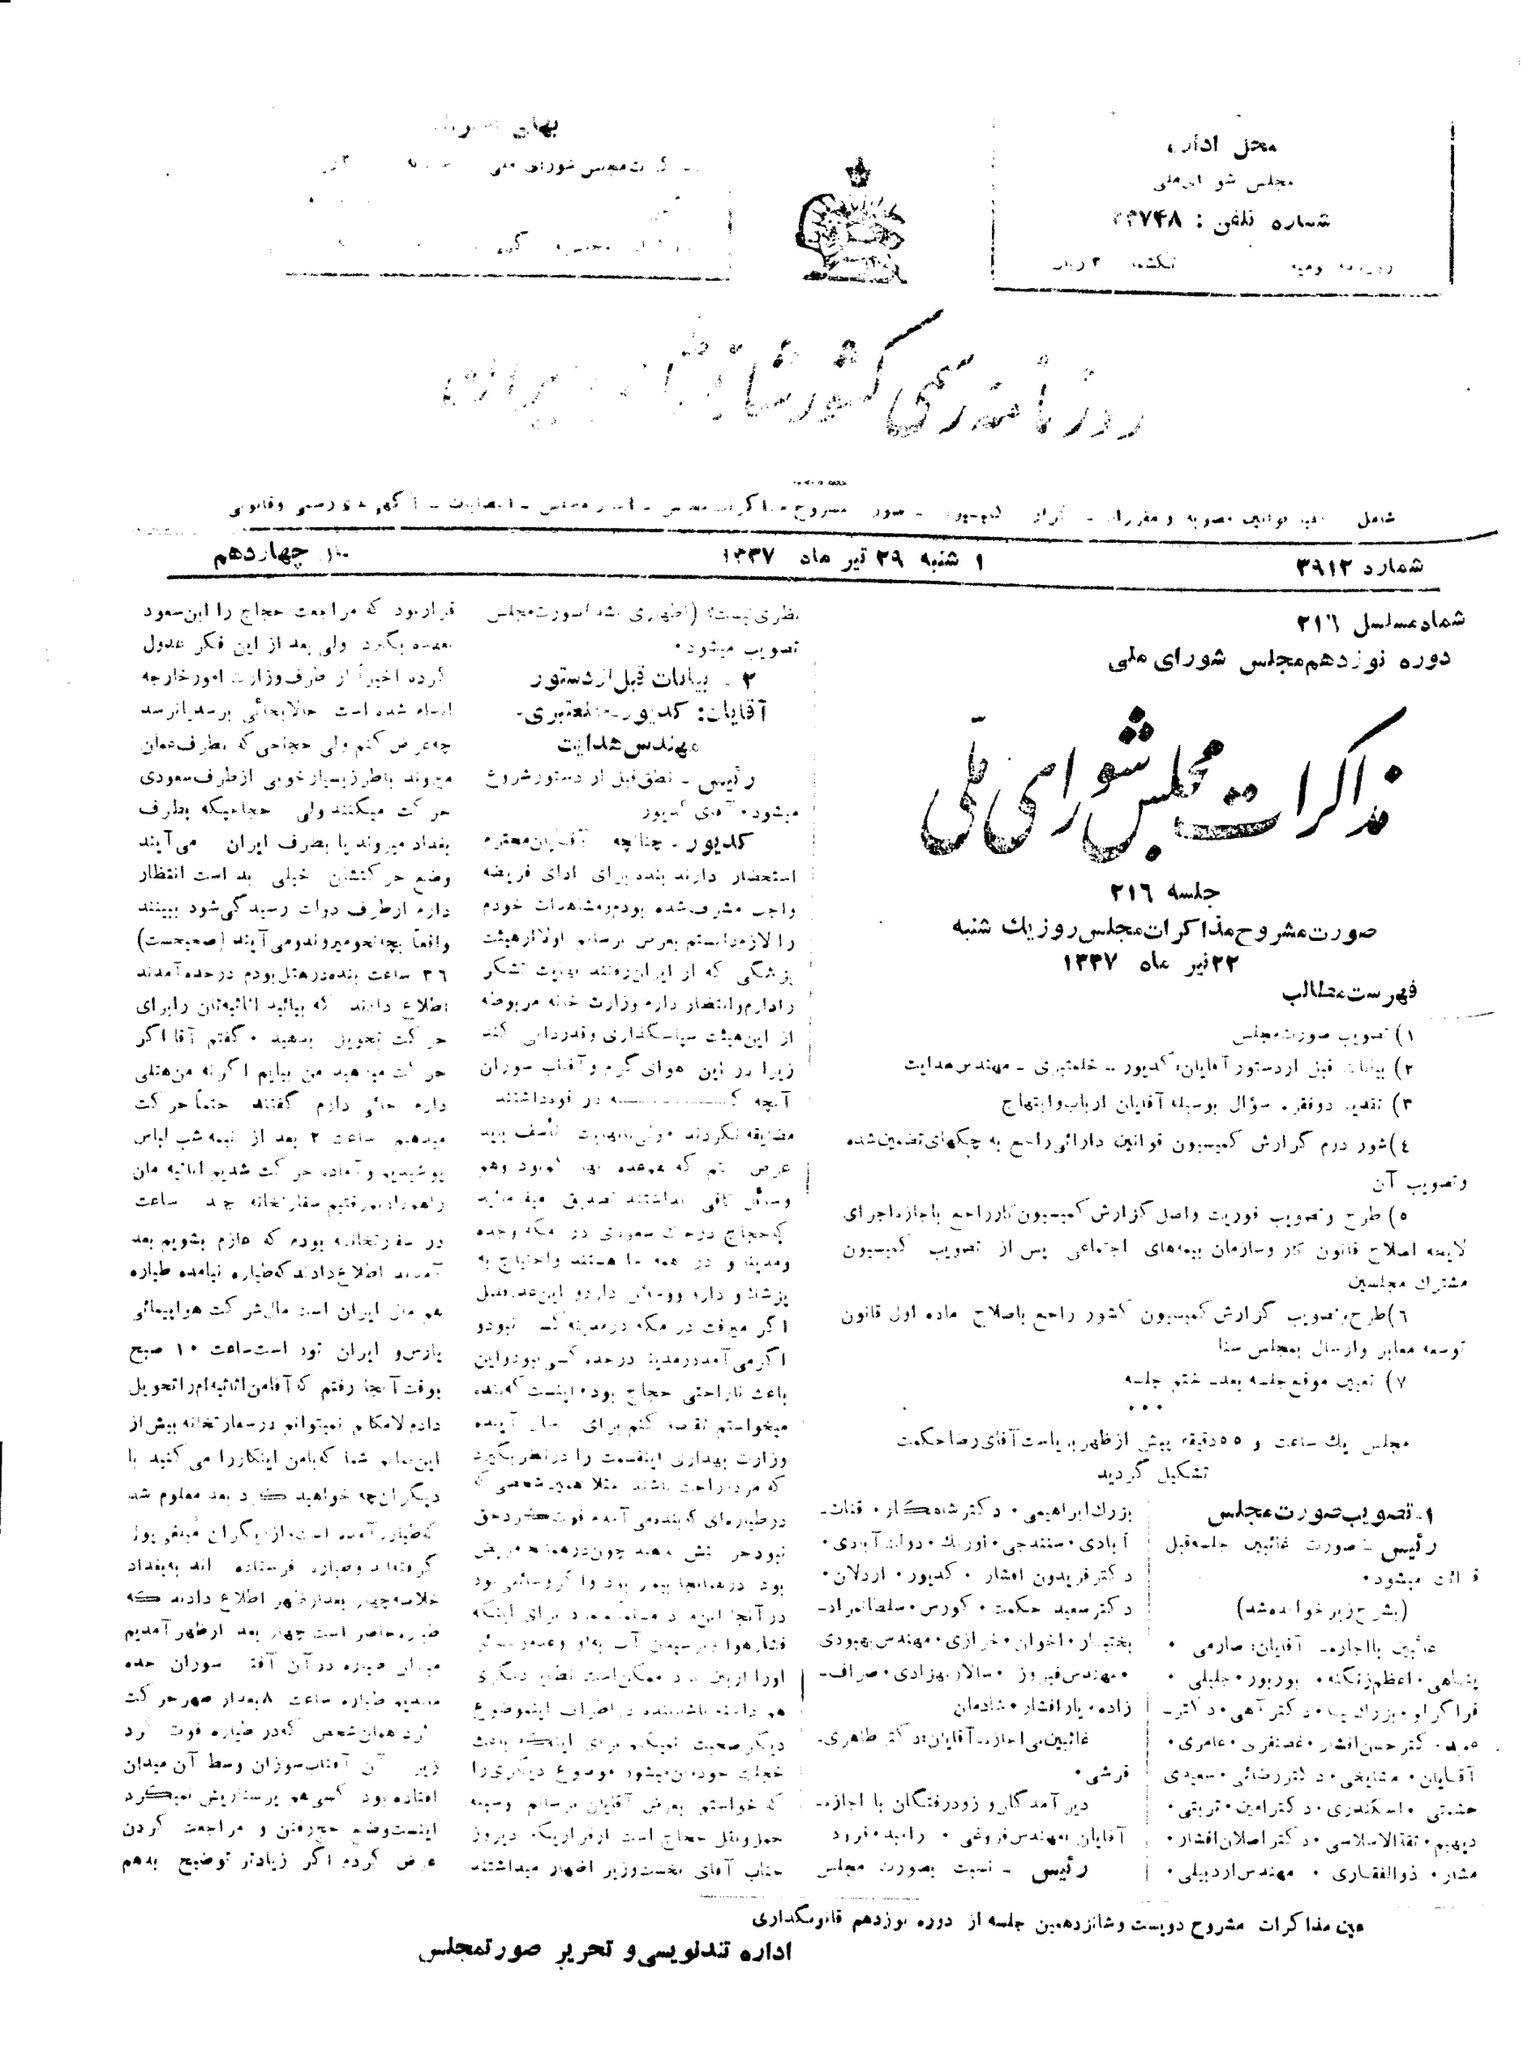 محل اداره
مجلس شورایملی
شماره تلفن :
تکشماره ۲ ریال
روزنامه رسمی کشور شاهنشاهی ایران
شماره ۳۹۱۲
شنبه ۲۹ تیر ماه ۱۳۳۷
سال چهاردهم
شماره مسلسل ۲۱۶
دوره نوزدهم مجلس شورای ملی
مذاکرات مجلس شورای ملی
جلسه ۲۱۶
صورت مشروح مذاکرات مجلس روز یک شنبه
۲۲ تیر ماه ۱۳۳۷
فهرست مطالب
۱) تصویب صورت مجلس
۲) بیانات قبل از دستور آقایان: کدیور - خلعتبری - مهندس هدایت
۳) تقدیم دو فقره سؤال بوسیله آقایان ارباب و ابتهاج
۴) شور دوم گزارش کمیسیون قوانین دارائی راجع به چکهای تضمین شده
و تصویب آن
۵) طرح و تصویب فوریت و اصل گزارش کمیسیون کار راجع باجازه اجرای
لایحه اصلاح قانون کار و سازمان بیمه‌های اجتماعی پس از تصویب کمیسیون
مشترک مجلسین
۶) طرح و تصویب گزارش کمیسیون کشور راجع باصلاح ماده اول قانون
توسعه معابر و ارسال بمجلس سنا
۷) تعیین موقع جلسه بعد - ختم جلسه
مجلس یک ساعت و ۵۵ دقیقه پیش از ظهر بریاست آقای رضا حکمت
تشکیل گردید
۱- تصویب صورت مجلس
رئیس - صورت غائبین جلسه قبل
قرائت میشود.
(بشرح زیر خوانده شد)
غائبین با اجازه - آقایان: صارمی .
پناهی . اعظم زنگنه . پوربور . جلیلی .
قراگزلو . بزرگ نیا . دکتر آهی . دکتر
عمید . دکتر حسن افشار . غضنفری . عامری .
آقایان . مشایخی . دکتر رضائی . سعیدی
حشمتی . اسکندری . دکتر امین . تربتی .
دیهیم . ثقةالاسلامی . دکتر اصلان افشار .
مشار . ذوالفقاری . مهندس اردبیلی .
بزرگ ابراهیمی . دکتر شاهکار . قنات
آبادی . سنندجی . اورنگ . دولت آبادی .
دکتر فریدون افشار . کدیور . اردلان .
دکتر سعید حکمت . کورس . سلطانمراد
بختیار . اخوان . خرازی . مهندس بهبودی
. مهندس فیروز . سالار بهزادی . صراف
زاده . یارافشار . شادمان
غائبین بی اجازه - آقایان: دکتر طاهری -
قرشی .
دیرآمدگان و زودرفتگان با اجازه -
آقایان: مهندس فروغی . رامبد . فرود
رئیس - نسبت بصورت مجلس
نظری نیست؟ (اظهاری نشد) صورت مجلس
تصویب میشود.
۲ - بیانات قبل از دستور
آقایان: کدیور - خلعتبری -
مهندس هدایت
رئیس - نطق قبل از دستور شروع
میشود. آقای کدیور
کدیور - چنانچه آقایان محترم
استحضار دارند بنده برای ادای فریضه
واجب مشرف شده بودم و مشاهدات خودم
را لازم دانستم بعرض برسانم اولا از هیئت
پزشکی که از ایران رفتند نهایت تشکر
را دارم و انتظار دارم وزارت خانه مربوطه
از این هیئت سپاسگذاری و قدردانی کند
زیرا در این هوای گرم و آفتاب سوزان
آنچه که در قوه داشتند
مضایقه نکردند ولی با نهایت تأسف باید
عرض کنم که عده آنها کم بود و هم
وسائل کافی نداشتند تصدیق میفرمائید
که حجاج در خاک سعودی در مکه و جده
و مدینه و در همه جا هستند و احتیاج به
پزشک و دارو و وسائل دارد و این عده قلیل
اگر میرفت در مکه در مدینه کسی نبود و
اگر می آمد در مدینه در جده کسی نبود و این
باعث ناراحتی حجاج بود. اینست که بنده
میخواستم تقاضا کنم برای سال آینده
وزارت بهداری اینقسمت را در نظر بگیرد
که مردم راحت باشند مثلا همین شخصی که
در طیاره‌ای که بنده می آمدم فوت کرد حق
نبود حرکتش دهند چون در همانجا مریض
بود
فشار هوا و نرسیدن آب باو و عدم وسائل
او را از بین برد ممکن است نظایر دیگری
هم داشته باشد بنده در اطراف اینموضوع
دیگر صحبت نمیکنم برای اینکه باعث
خجلت خودمان میشود موضوع دیگری را
که خواستم بعرض آقایان برسانم وسیله
حمل و نقل حجاج است از قراریکه دیروز
جناب آقای نخست وزیر اظهار میداشتند
قرار بود که مراجعت حجاج را ابن سعود
بعهده بگیرد ولی بعد از این فکر عدول
کرده اخیراً از طرف وزارت امور خارجه
اقدام شده است حالا بجائی برسد یا نرسد
چه عرض کنم ولی حجاجی که بطرف عمان
میروند با طرز بسیار خوبی از طرف سعودی
حرکت میکنند ولی حجاجیکه بطرف
بغداد میروند یا بطرف ایران می‌آیند
وضع حرکتشان خیلی بد است انتظار
دارم از طرف دولت رسیدگی شود ببینند
واقعاً بچه نحو میروند و می آیند (صحیحست)
۳۶ ساعت بنده در هتل بودم در جده آمدند
اطلاع دادند که بیائید اثاثیه‌تان را برای
حرکت تحویل بدهید . گفتم آقا اگر
حرکت میدهید من بیایم اگر نه من هتلی
دارم جائی دارم گفتند حتماً حرکت
میدهیم ساعت ۲ بعد از نیمه شب لباس
پوشیدیم و آماده حرکت شدیم اثاثیه مان
را هم دادیم رفتیم سفارتخانه چند ساعت
در سفارتخانه بودم که عازم بشویم بعد
آمدند اطلاع دادند که طیاره نیامده طیاره
هم مال ایران است مال شرکت هواپیمائی
پارس و ایران تور است ساعت ۱۰ صبح
بوقت آنجا رفتم که آقا من اثاثیه ام را تحویل
داده‌ام لامکانم نمیتوانم در سفارتخانه بیش از
این بمانم شما که با من اینکار را می کنید با
دیگران چه خواهید کرد بعد معلوم شد
که طیاره آمده است از دیگران مبلغی پول
گرفته‌اند و طیاره فرستاده اند به بغداد
خلاصه چهار بعدازظهر اطلاع دادند که
طیاره حاضر است چهار بعد از ظهر آمدیم
میدان طیاره در آن آفتاب سوزان جده
ماندیم طیاره ساعت ۸ بعد از ظهر حرکت
کرد همان شخص که در طیاره فوت کرد
زیر آن آفتاب سوزان وسط آن میدان
افتاده بود کسی هم پرستاریش نمیکرد
اینست وضع حج رفتن و مراجعت کردن
عرض کردم اگر زیادتر توضیح بدهم
عین مذاکرات مشروح دویست و شانزدهمین جلسه از دوره نوزدهم قانونگذاری
اداره تندنویسی و تحریر صورتمجلس